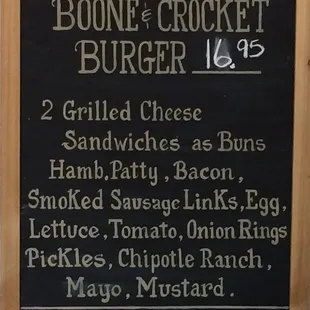 BOONE & CROCKET
BURGER 16.95
2 Grilled Cheese
Sandwiches as Buns
Hamb. Patty, Bacon,
Smoked Sausage Links, Egg,
Lettuce, Tomato, Onion Rings
Pickles, Chipotle Ranch,
Mayo, Mustard.